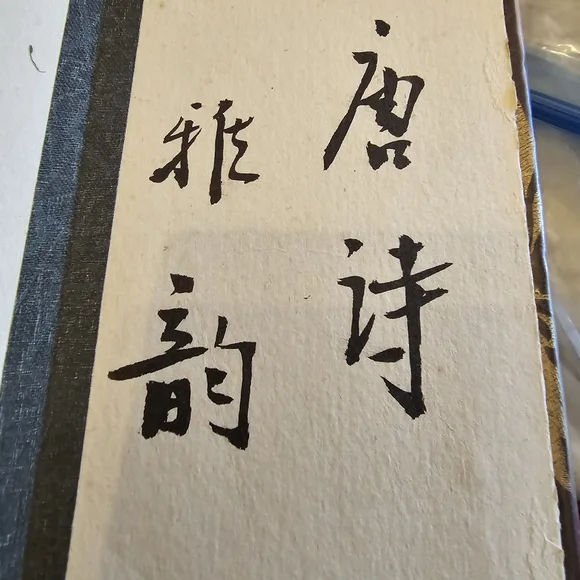 唐诗
雅韵